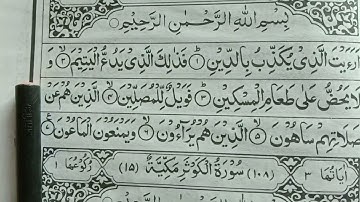 بِسْمِ اللهِ الرَّحْمٰنِ الرَّحِيْمِ
اَرَءَيْتَ الَّذِيْ يُكَذِّبُ بِالدِّيْنِ ۱ فَذٰلِكَ الَّذِيْ يَدُعُّ الْيَتِيْمَ ۲ وَ
لَا يَحُضُّ عَلٰى طَعَامِ الْمِسْكِيْنِ ۳ فَوَيْلٌ لِّلْمُصَلِّيْنَ ۴ الَّذِيْنَ هُمْ عَنْ
صَلَاتِهِمْ سَاهُوْنَ ۵ الَّذِيْنَ هُمْ يُرَآءُوْنَ ۶ وَيَمْنَعُوْنَ الْمَاعُوْنَ
اٰيَاتُهَا ۳ (۱۰۸) سُوْرَةُ الْكَوْثَرِ مَكِّيَّةٌ (۱۵) رُكُوْعُهَا ۱